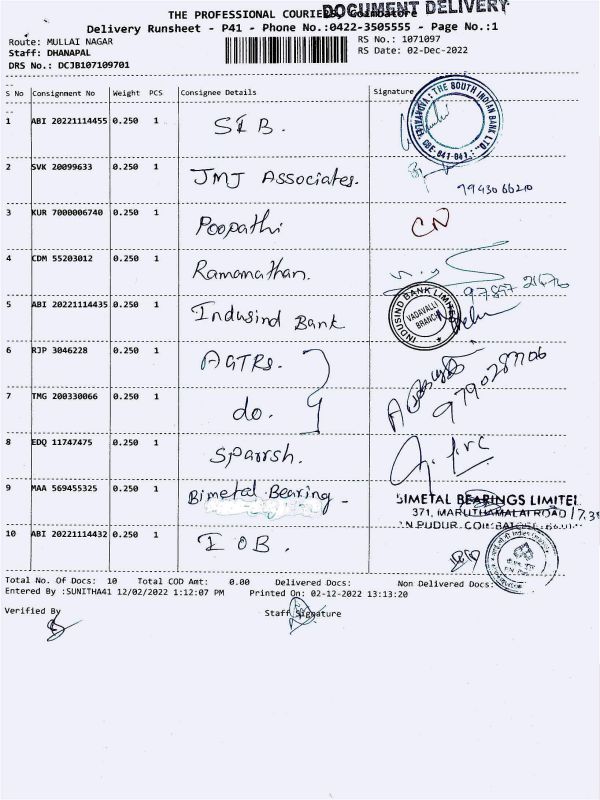 DOCUMENT DELIVERY
THE PROFESSIONAL COURIERS, Coimbatore
Delivery Runsheet - P41 - Phone No.:0422-3505555 - Page No.:1
Route: MULLAI NAGAR
RS No.: 1071097
Staff: DHANAPAL
RS Date: 02-Dec-2022
DRS No.: DCJB107109701
S No Consignment No Weight PCS Consignee Details Signature
1 ABI 20221114455 0.250 1 SIB.
THE SOUTH INDIAN BANK LTD.
2 SVK 20099633 0.250 1 JMJ Associates.
99430 66210
3 KUR 7000006740 0.250 1 Poopathi CN
4 CDM 55203012 0.250 1 Ramanathan.
5 ABI 20221114435 0.250 1 Indusind Bank
INDUSIND BANK LIMITED
VADAVALLI
BRANCH
6 RJP 3046228 0.250 1 AGTRs.
9790287106
7 TMG 200330066 0.250 1 do.
8 EDQ 11747475 0.250 1 Sparrsh.
9 MAA 569455325 0.250 1 Bimetal Bearing -
BIMETAL BEARINGS LIMITED
371, MARUTHAMALAI ROAD
10 ABI 20221114432 0.250 1 IOB.
Total No. Of Docs: 10 Total COD Amt: 0.00 Delivered Docs: Non Delivered Docs:
Entered By :SUNITHA41 12/02/2022 1:12:07 PM Printed On: 02-12-2022 13:13:20
Verified By
Staff Signature